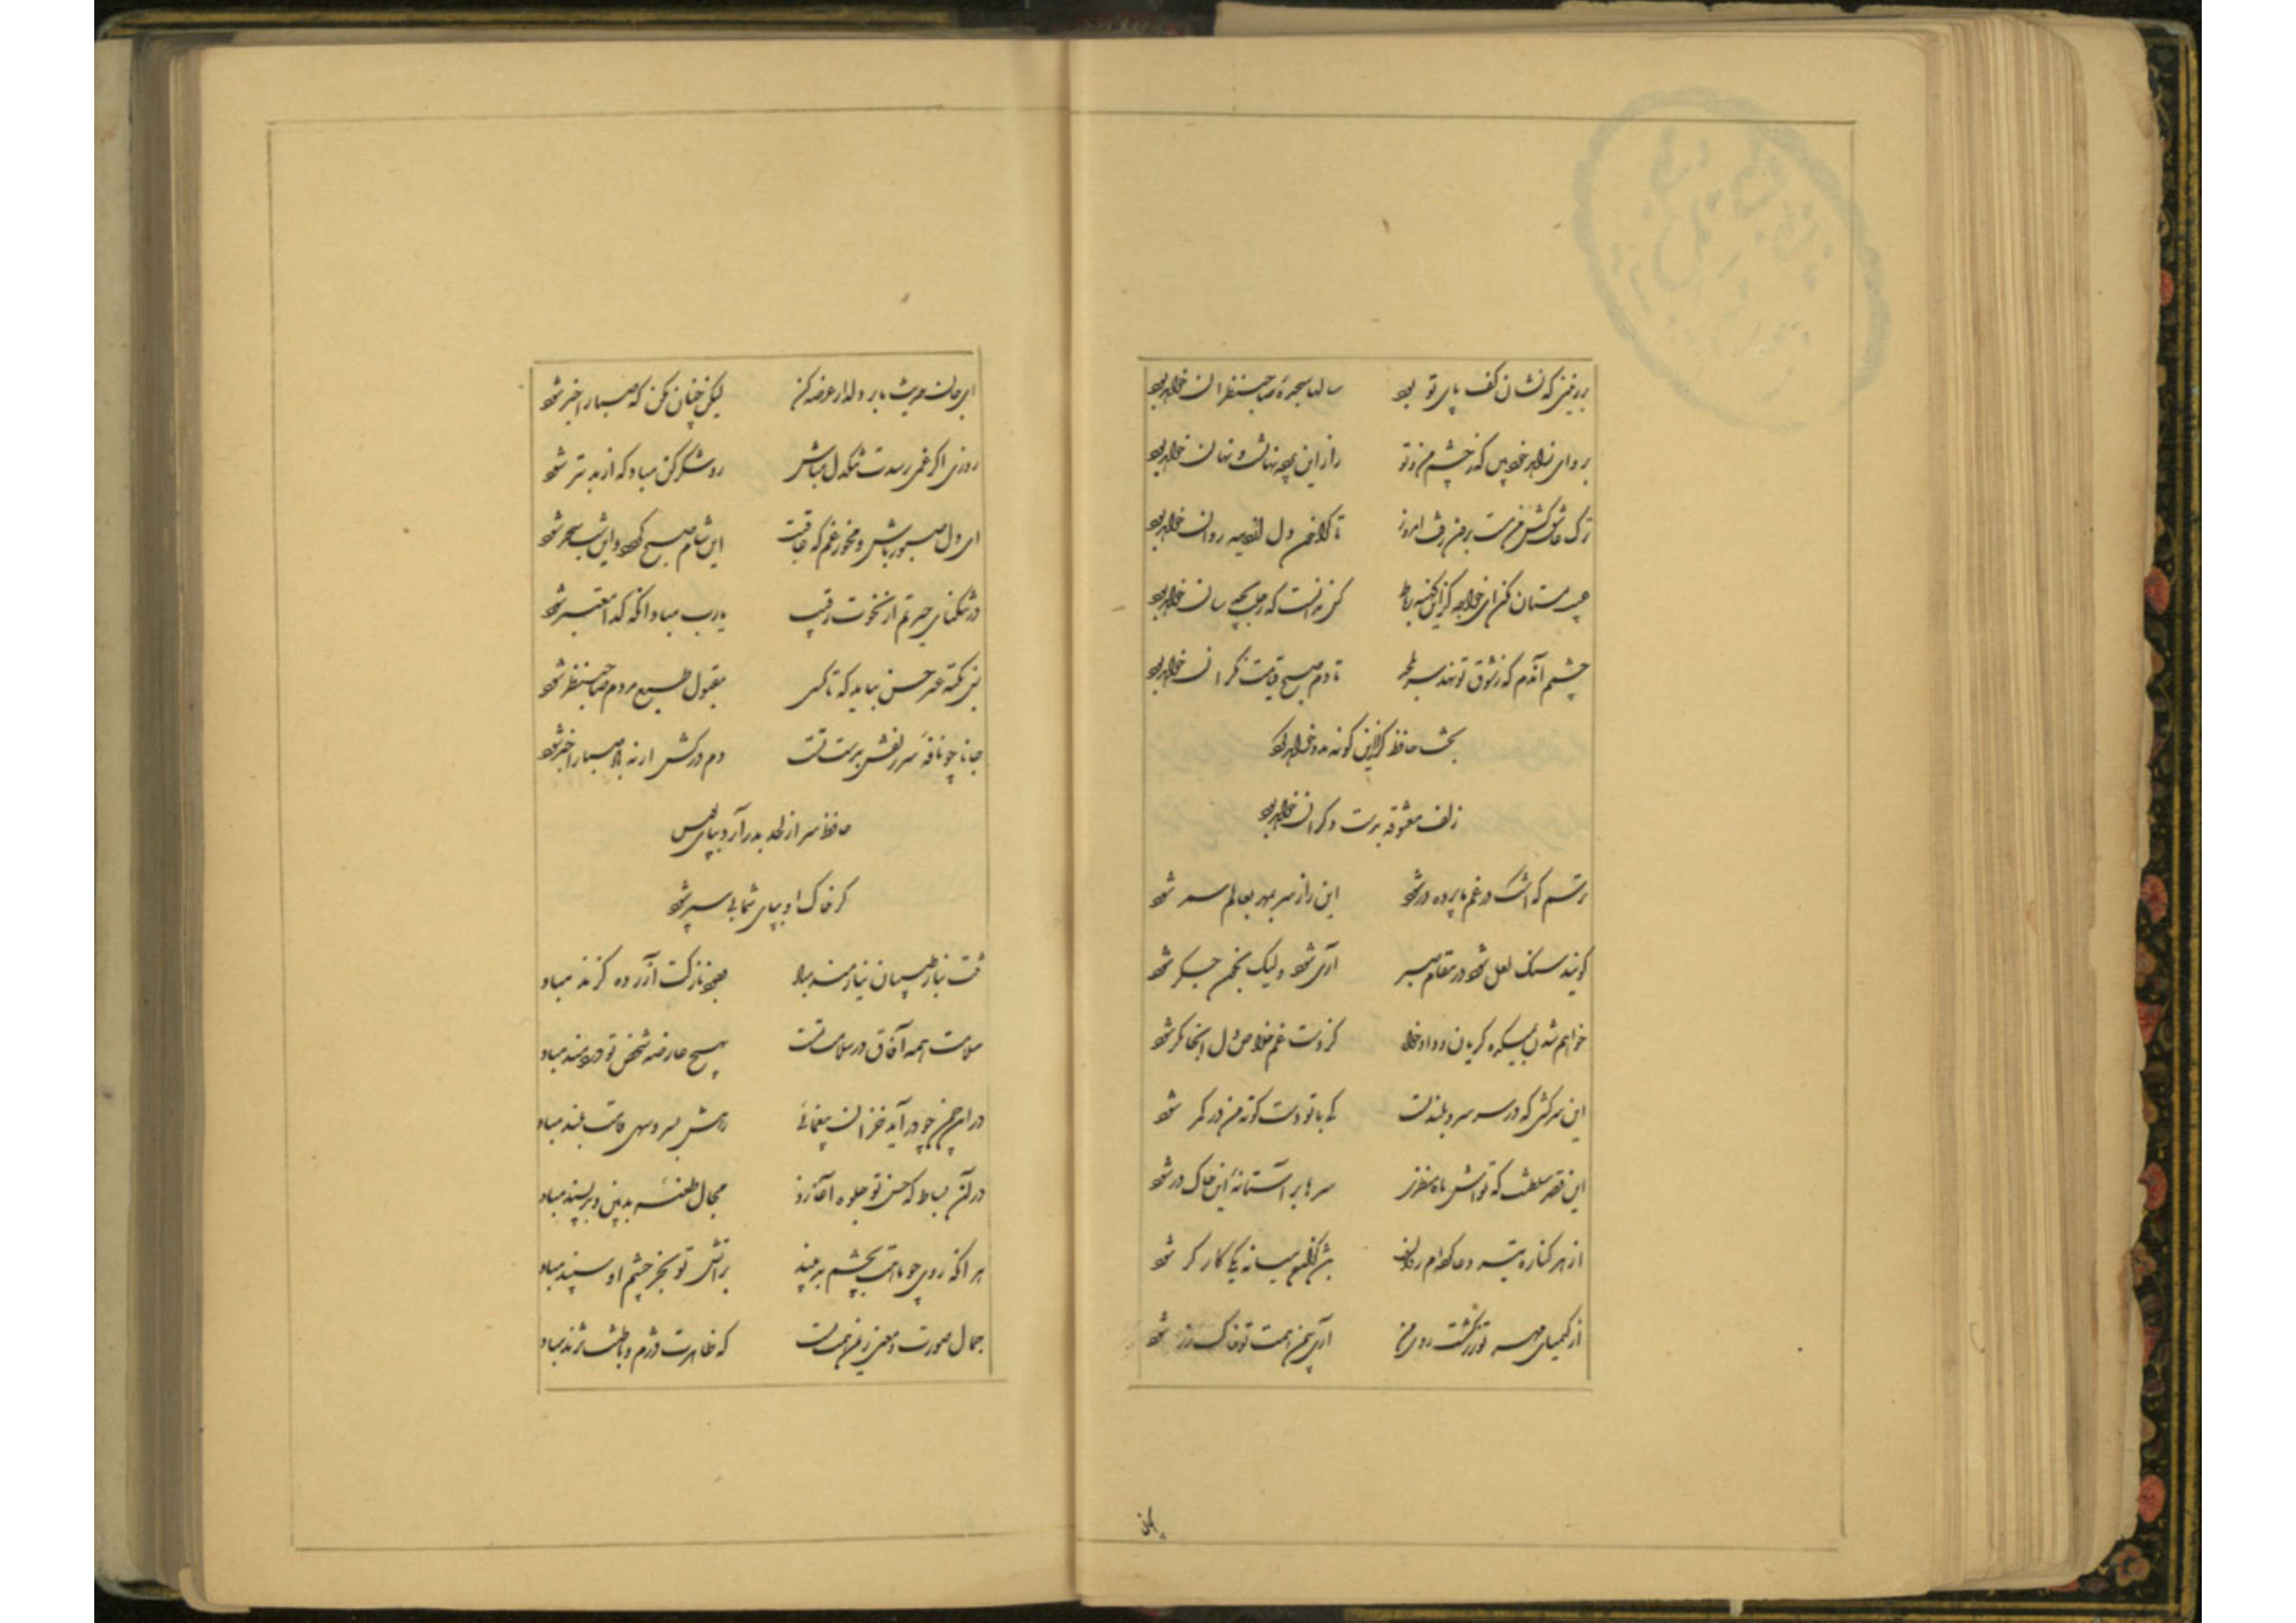 بر زمینی که نشان کف پای تو بود سالها سجده صاحبنظران خواهد بود
برو ای زاهد خودبین که ز چشم من و تو راز این پرده نهانست و نهان خواهد بود
ترک عاشق کش من مست برون رفت امروز تا کرا خون دل از دیده روان خواهد بود
عیب مستان مکن ای خواجه کزین کهنه رباط کس ندانست که رحلت بچه سان خواهد بود
چشمم آندم که ز شوق تو نهد سر بلحد تا دم صبح قیامت نگران خواهد بود
بخت حافظ گر ازین گونه مدد خواهد کرد
زلف معشوقه بدست دگران خواهد بود
ترسم که اشک در غم ما پرده در شود این راز سر بمهر بعالم سمر شود
گویند سنگ لعل شود در مقام صبر آری شود ولیک بخون جگر شود
خواهم شدن بمیکده گریان و دادخواه کز دست غم خلاص دل آنجا مگر شود
این سرکشی که در سر سرو بلند تست کی با تو دست کوته من در کمر شود
این قصر سلطنت که تواش ماه منظری سرها بر آستانه این خاک در شود
از هر کناره تیر دعا کرده ام روان باشد کزان میانه یکی کارگر شود
از کیمیای مهر تو زر گشت روی من آری بیمن همت تو خاک زر شود
ای جان حدیث ما بر دلدار عرضه کن لیکن چنان مکن که صبا را خبر شود
روزی اگر غمی رسدت تنگدل مباش رو شکر کن مباد که از بد بتر شود
ای دل صبور باش و مخور غم که عاقبت این شام صبح گردد و این شب سحر شود
در تنگنای حیرتم از نخوت رقیب یارب مباد آنکه گدا معتبر شود
بس نکته غیر حسن بباید که تا کسی مقبول طبع مردم صاحبنظر شود
جانا چو نافه سر زلفش بدست تست دم درکش ارنه باد صبا را خبر شود
حافظ سر از لحد بدر آرد بپای بوس
گر خاک او بپای شما پی سپر شود
تنت بناز طبیبان نیازمند مباد وجود نازکت آزرده گزند مباد
سلامت همه آفاق در سلامت تست بهیچ عارضه شخص تو دردمند مباد
در این چمن چو درآید خزان بیغمائی رهش بسرو سهی قامت بلند مباد
در آن بساط که حسن تو جلوه آغازد مجال طعنه بدبین و بدپسند مباد
هر آنکه روی چو ماهت بچشم بد بیند بر آتش تو بجز چشم او سپند مباد
جمال صورت و معنی ز امن همت تست که ظاهرت دژم و باطنت نژند مباد